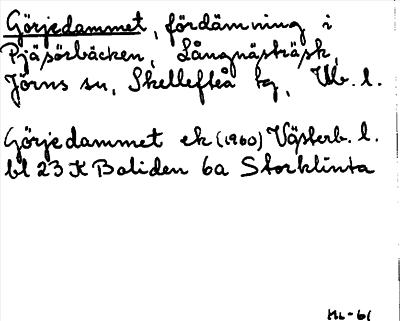 Görjedammet, fördämning i
Pjäsörbäcken, Långnästräsk,
Jörns sn, Skellefteå kg, Vb. l.
Görjedammet ek (1960) Västerb. l.
bl 23 K Boliden 6a Storklinta